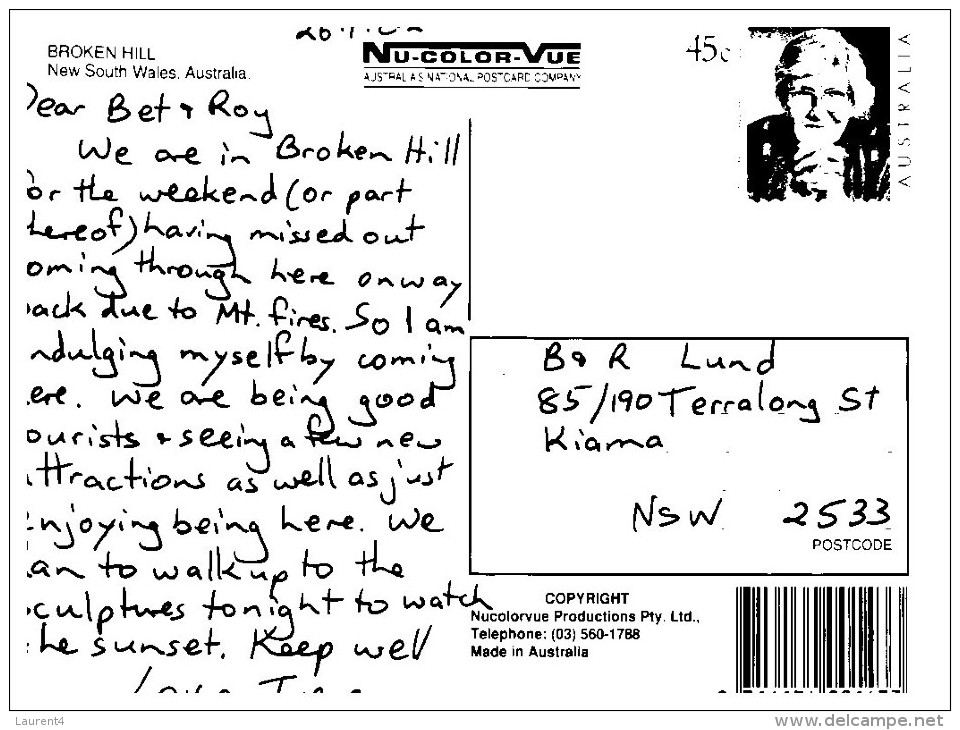 BROKEN HILL
New South Wales, Australia.
NU-COLOR-VUE
AUSTRALIA'S NATIONAL POSTCARD COMPANY
45c
AUSTRALIA
ear Bet & Roy
We are in Broken Hill
or the weekend (or part
hereof) having missed out
oming through here on way
ack due to Mt. fires. So I am
ndulging myself by coming
ere. We are being good
ourists & seeing a few new
ttractions as well as just
njoying being here. We
an to walk up to the
culptures tonight to watch
he sunset. Keep well
Love
B & R Lund
85/190 Terralong St
Kiama
NSW 2533
POSTCODE
COPYRIGHT
Nucolorvue Productions Pty. Ltd.,
Telephone: (03) 560-1788
Made in Australia
Laurent4
www.delcampe.net